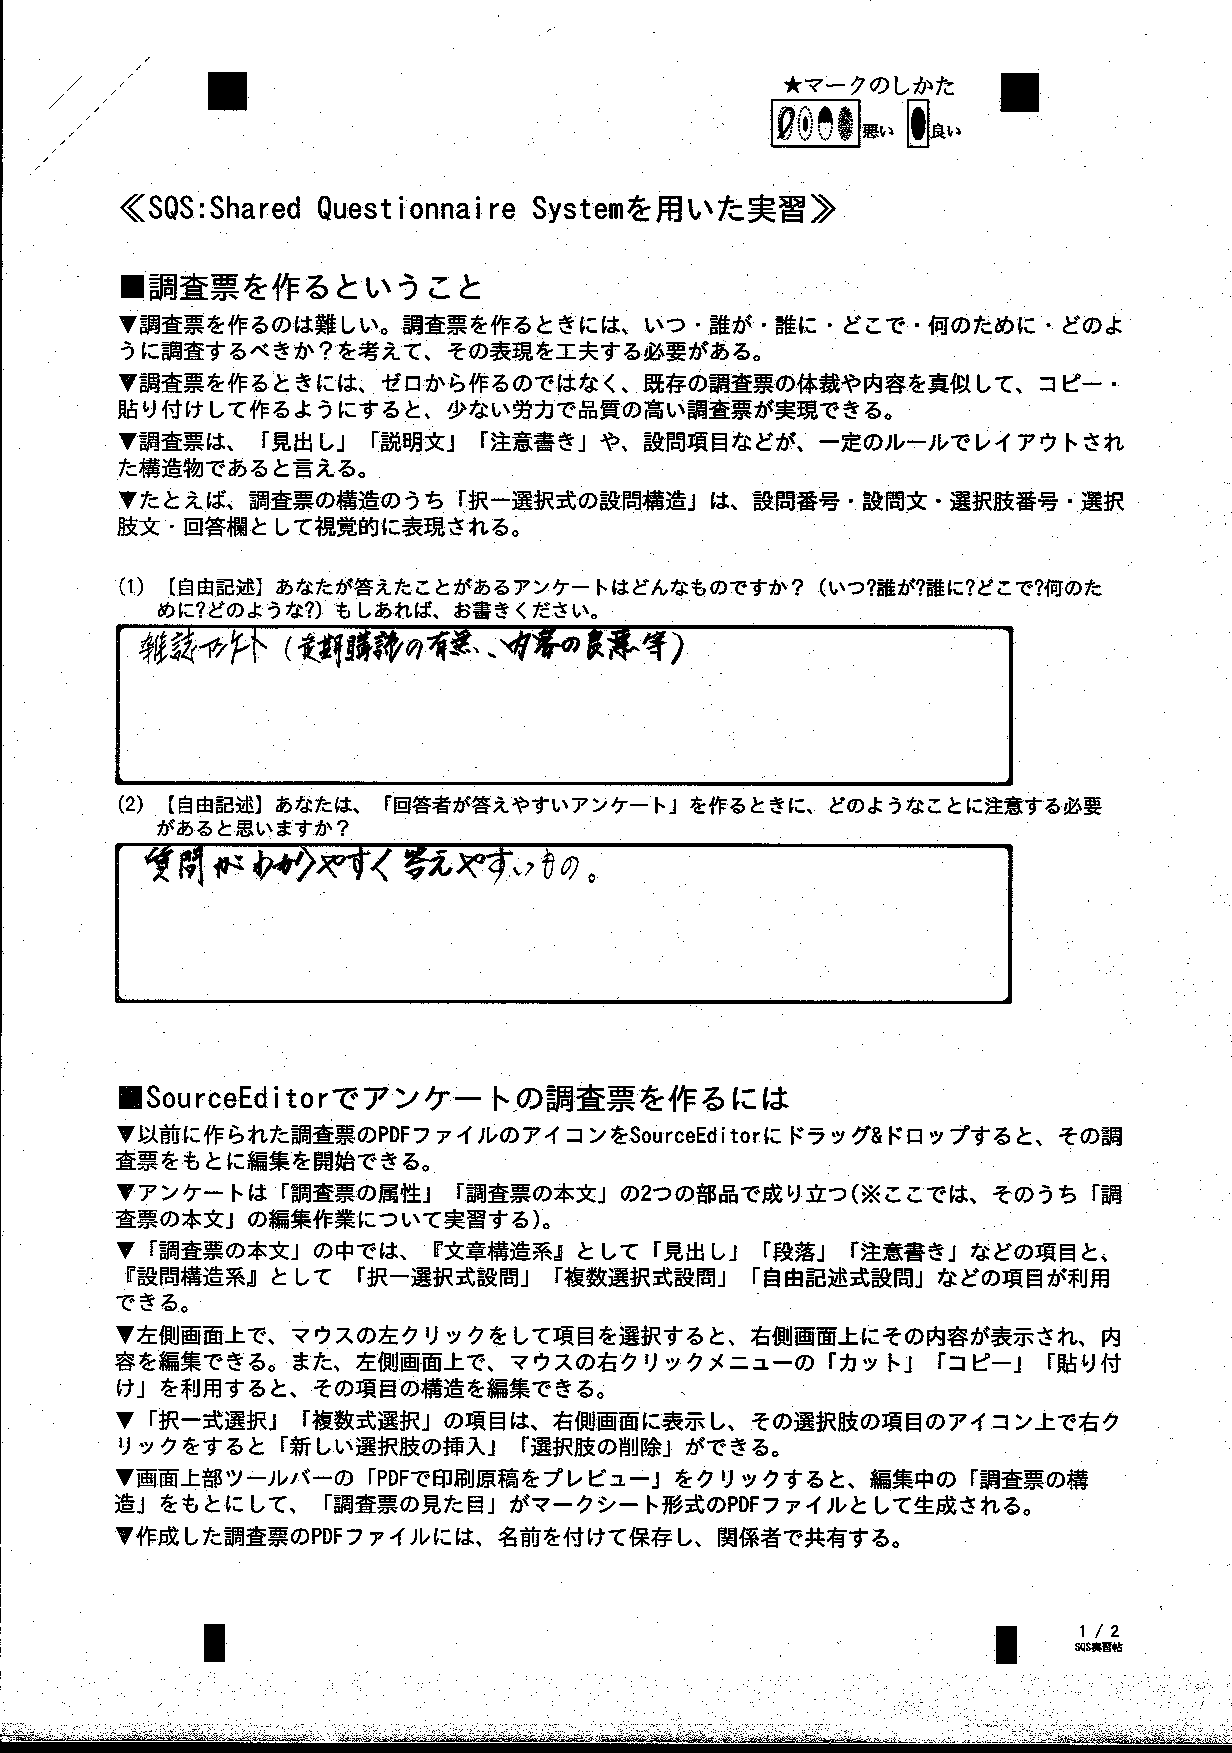 ★マークのしかた
悪い 良い
≪SQS:Shared Questionnaire Systemを用いた実習≫
■調査票を作るということ
▼調査票を作るのは難しい。調査票を作るときには、いつ・誰が・誰に・どこで・何のために・どのよ
うに調査するべきか?を考えて、その表現を工夫する必要がある。
▼調査票を作るときには、ゼロから作るのではなく、既存の調査票の体裁や内容を真似して、コピー・
貼り付けして作るようにすると、少ない労力で品質の高い調査票が実現できる。
▼調査票は、「見出し」「説明文」「注意書き」や、設問項目などが、一定のルールでレイアウトされ
た構造物であると言える。
▼たとえば、調査票の構造のうち「択一選択式の設問構造」は、設問番号・設問文・選択肢番号・選択
肢文・回答欄として視覚的に表現される。
(1) 【自由記述】あなたが答えたことがあるアンケートはどんなものですか?(いつ?誰が?誰に?どこで?何のた
めに?どのような?)もしあれば、お書きください。
雑誌アンケート(定期購読の有無、内容の良悪等)
(2) 【自由記述】あなたは、「回答者が答えやすいアンケート」を作るときに、どのようなことに注意する必要
があると思いますか?
質問がわかりやすく答えやすいもの。
■SourceEditorでアンケートの調査票を作るには
▼以前に作られた調査票のPDFファイルのアイコンをSourceEditorにドラッグ&ドロップすると、その調
査票をもとに編集を開始できる。
▼アンケートは「調査票の属性」「調査票の本文」の2つの部品で成り立つ(※ここでは、そのうち「調
査票の本文」の編集作業について実習する)。
▼「調査票の本文」の中では、『文章構造系』として「見出し」「段落」「注意書き」などの項目と、
『設問構造系』として 「択一選択式設問」「複数選択式設問」「自由記述式設問」などの項目が利用
できる。
▼左側画面上で、マウスの左クリックをして項目を選択すると、右側画面上にその内容が表示され、内
容を編集できる。また、左側画面上で、マウスの右クリックメニューの「カット」「コピー」「貼り付
け」を利用すると、その項目の構造を編集できる。
▼「択一式選択」「複数式選択」の項目は、右側画面に表示し、その選択肢の項目のアイコン上で右ク
リックをすると「新しい選択肢の挿入」「選択肢の削除」ができる。
▼画面上部ツールバーの「PDFで印刷原稿をプレビュー」をクリックすると、編集中の「調査票の構
造」をもとにして、「調査票の見た目」がマークシート形式のPDFファイルとして生成される。
▼作成した調査票のPDFファイルには、名前を付けて保存し、関係者で共有する。
1 / 2
SQS実習帖